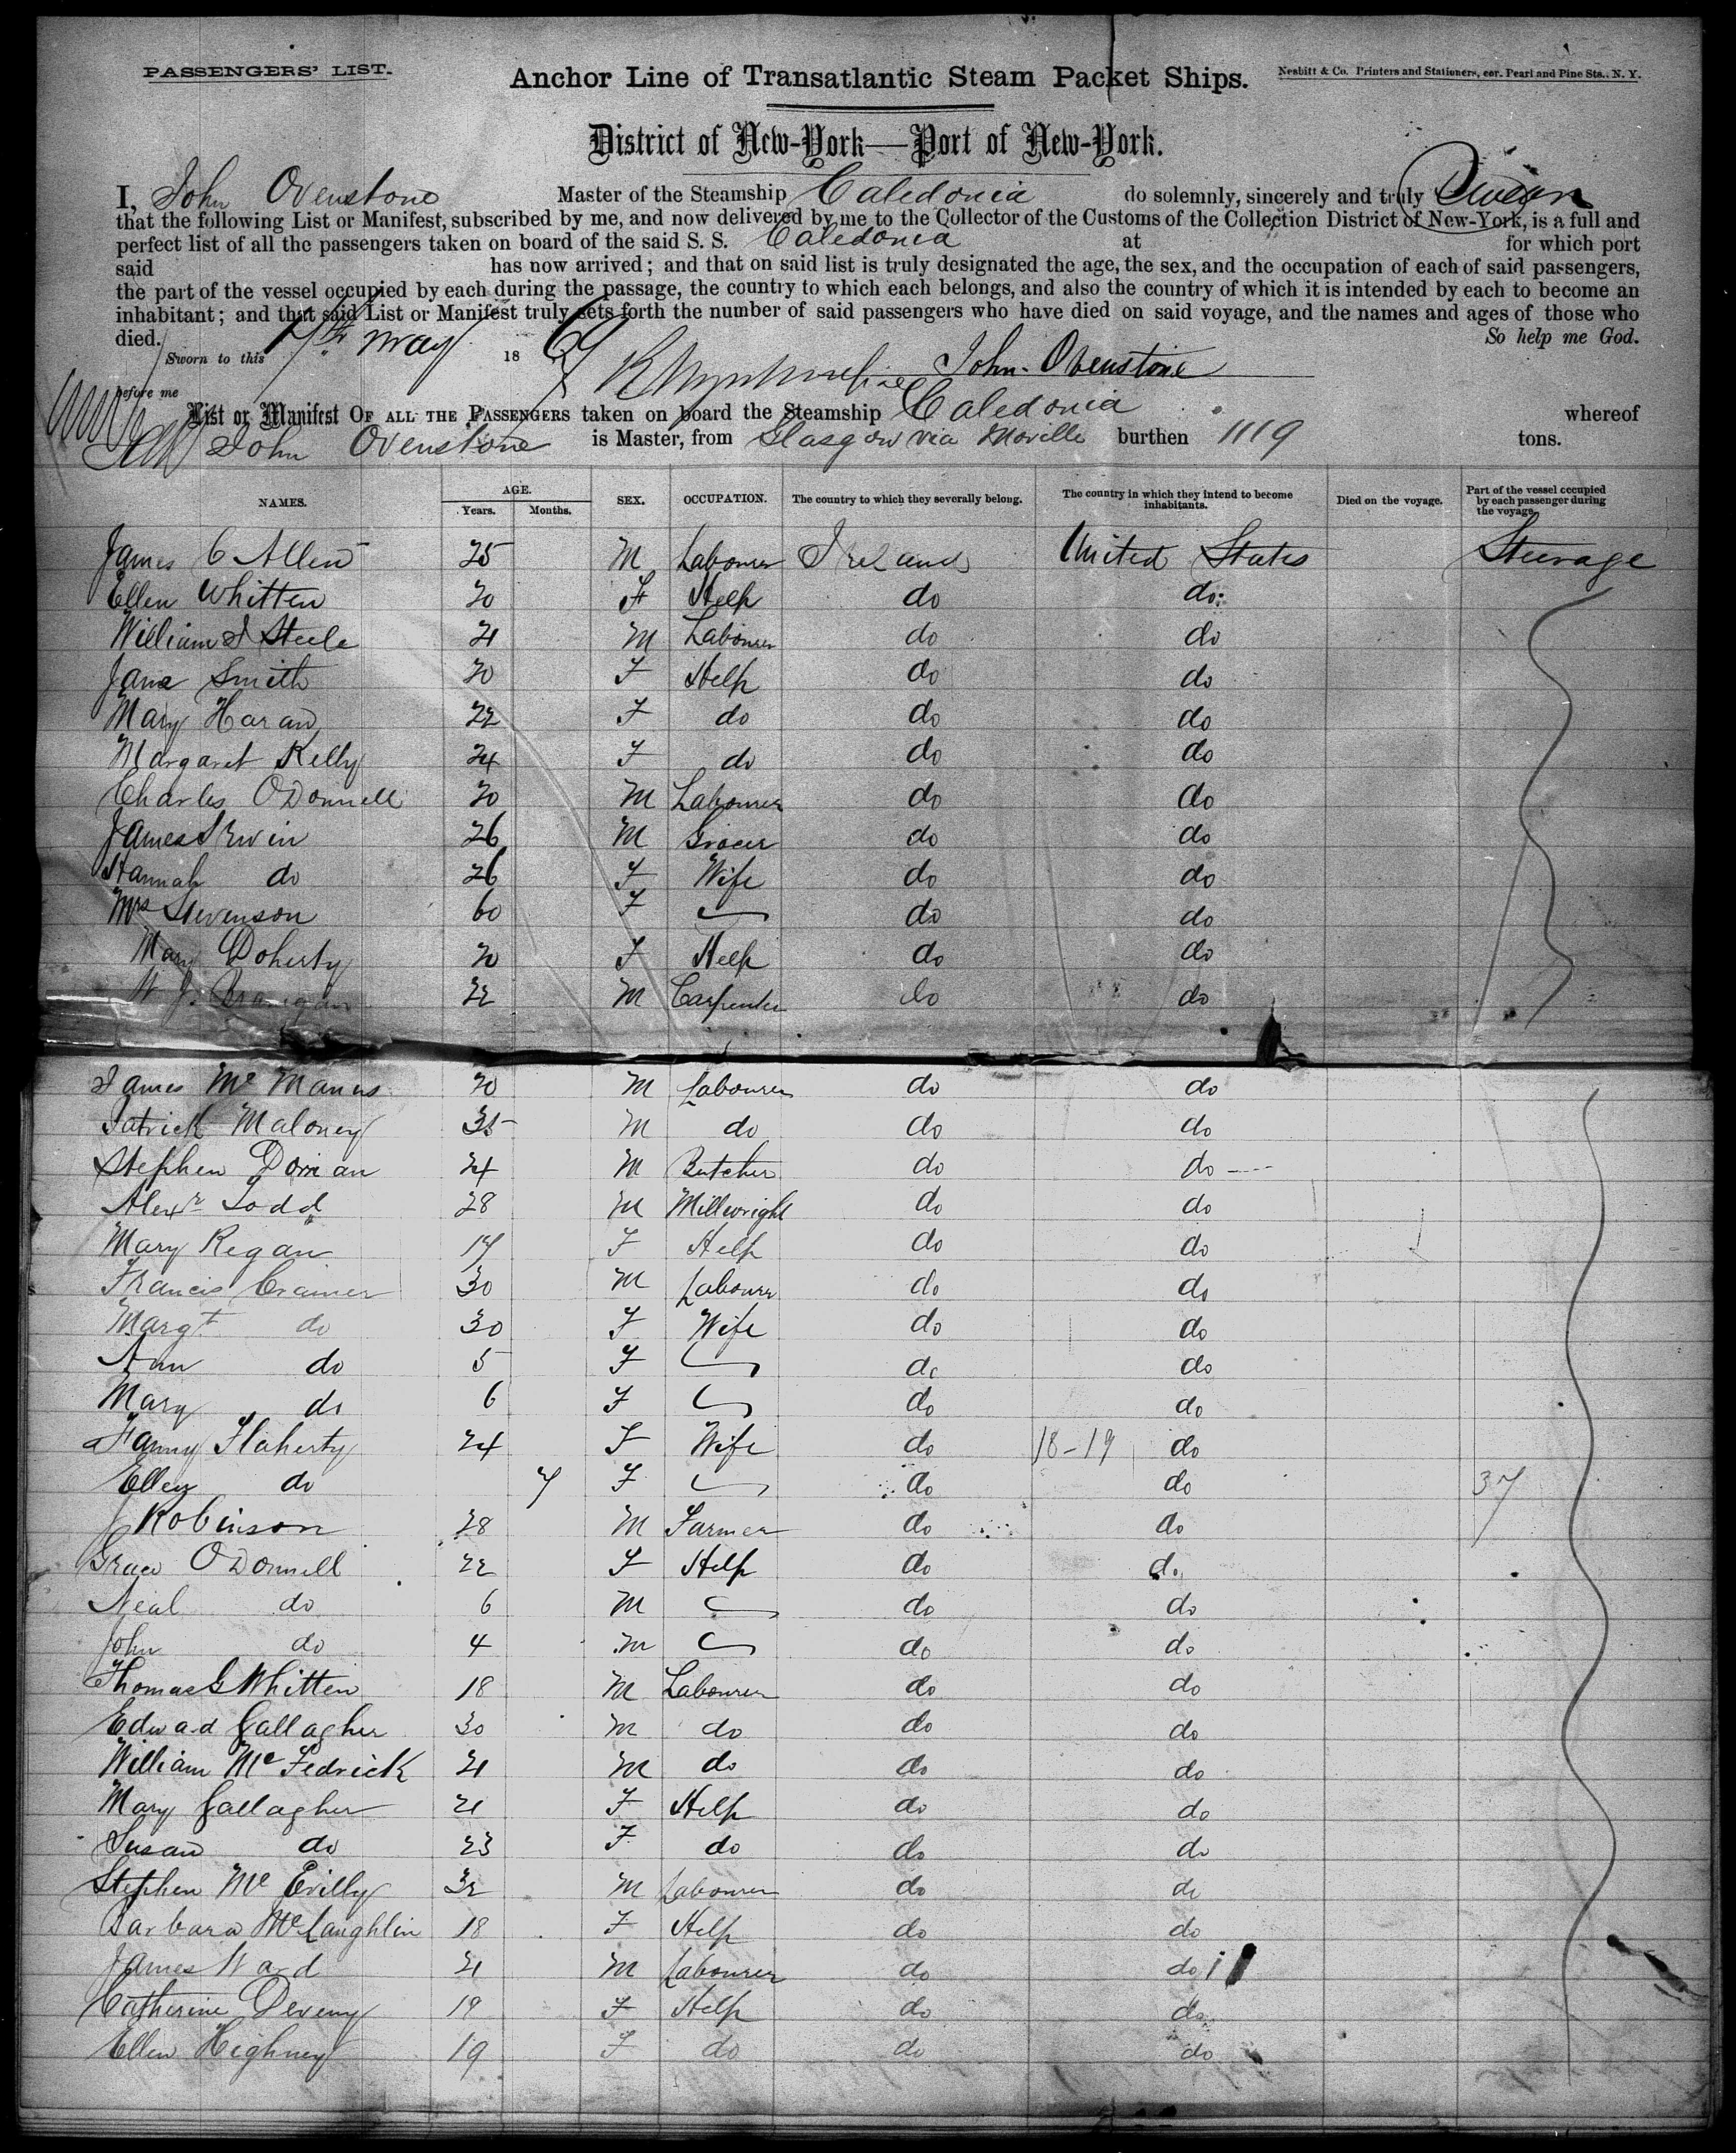 PASSENGERS' LIST.
Anchor Line of Transatlantic Steam Packet Ships.
Nesbitt & Co. Printers and Stationers, cor. Pearl and Pine Sts., N. Y.
District of New-York—Port of New-York.
I, John Ovenstone Master of the Steamship Caledonia do solemnly, sincerely and truly Swear
that the following List or Manifest, subscribed by me, and now delivered by me to the Collector of the Customs of the Collection District of New-York, is a full and
perfect list of all the passengers taken on board of the said S. S. Caledonia at for which port
said has now arrived; and that on said list is truly designated the age, the sex, and the occupation of each of said passengers,
the part of the vessel occupied by each during the passage, the country to which each belongs, and also the country of which it is intended by each to become an
inhabitant; and that said List or Manifest truly sets forth the number of said passengers who have died on said voyage, and the names and ages of those who
died. So help me God.
Sworn to this 7th May 1869 John Ovenstone
before me
List or Manifest OF ALL THE PASSENGERS taken on board the Steamship Caledonia whereof
John Ovenstone is Master, from Glasgow via Moville burthen 1119 tons.
NAMES. AGE. Years. Months. SEX. OCCUPATION. The country to which they severally belong. The country in which they intend to become inhabitants. Died on the voyage. Part of the vessel occupied by each passenger during the voyage.
James C Allen 25 M Labourer Ireland United States Steerage
Ellen Whitten 20 F Help do do
William J Steele 21 M Labourer do do
Jane Smith 20 F Help do do
Mary Haran 22 F do do do
Margaret Kelly 24 F do do do
Charles O'Donnell 20 M Labourer do do
James Irwin 26 M Grocer do do
Hannah do 26 F Wife do do
Mrs Stevenson 60 F do do
Mary Doherty 20 F Help do do
W J. 22 M Carpenter do do
James McManus 20 M Labourer do do
Patrick Maloney 35 M do do do
Stephen Dorian 24 M Butcher do do
Alexr Todd 28 M Millwright do do
Mary Regan 17 F Help do do
Francis Cramer 30 M Labourer do do
Margt do 30 F Wife do do
Ann do 5 F do do
Mary do 6 F do do
Fanny Flaherty 24 F Wife do 18-19 do
Ellen do 7 F do do 37
J Robinson 28 M Farmer do do
Grace O'Donnell 22 F Help do do
Neal do 6 M do do
John do 4 M do do
Thomas G Whitten 18 M Labourer do do
Edward Gallagher 30 M do do do
William McFedrick 21 M do do do
Mary Gallagher 21 F Help do do
Susan do 23 F do do do
Stephen McEvilly 32 M Labourer do do
Barbara McLaughlin 18 F Help do do
James Ward 21 M Labourer do do
Catherine Deveny 19 F Help do do
Ellen Highney 19 F do do do